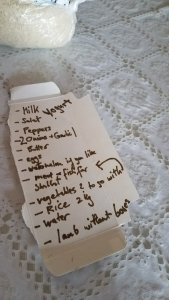 - Milk yogurt
- Salat
- Peppers
- 2 onions + Garlic !
- Butter
- eggs
- watermelon if you like
- meat + fish for
- vegetables to go with
- Rice 2 kg
- water
- lamb without bones